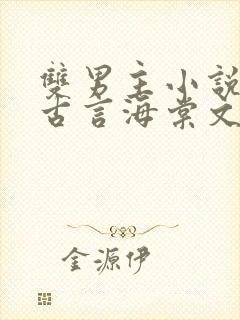 雙男主小説
古言海棠文
金源伊